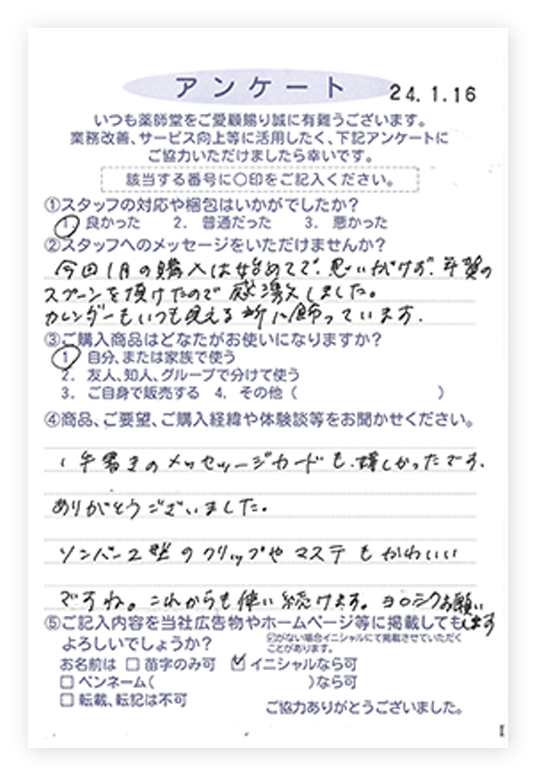 アンケート
24.1.16
いつも薬師堂をご愛顧賜り誠に有難うございます。
業務改善、サービス向上等に活用したく、下記アンケートに
ご協力いただけましたら幸いです。
該当する番号に〇印をご記入ください。
①スタッフの対応や梱包はいかがでしたか?
1. 良かった 2. 普通だった 3. 悪かった
②スタッフへのメッセージをいただけませんか?
今回1月の購入は始めてで、思いがけず、年賀の
スプーンを頂けたので感激しました。
カレンダーもいつも見える所に飾っています.
③ご購入商品はどなたがお使いになりますか?
1. 自分、または家族で使う
2. 友人、知人、グループで分けて使う
3. ご自身で販売する 4. その他( )
④商品、ご要望、ご購入経緯や体験談等をお聞かせください。
手書きのメッセージカードも、嬉しかったです.
ありがとうございました。
ソンバーユ型のクリップやマステもかわいい
ですね。これからも使い続けます。ヨロシクお願い
します
⑤ご記入内容を当社広告物やホームページ等に掲載しても
よろしいでしょうか?
☑がない場合イニシャルにて掲載させていただく
ことがあります。
お名前は □ 苗字のみ可 ☑ イニシャルなら可
□ ペンネーム( )なら可
□ 転載、転記は不可
ご協力ありがとうございました。